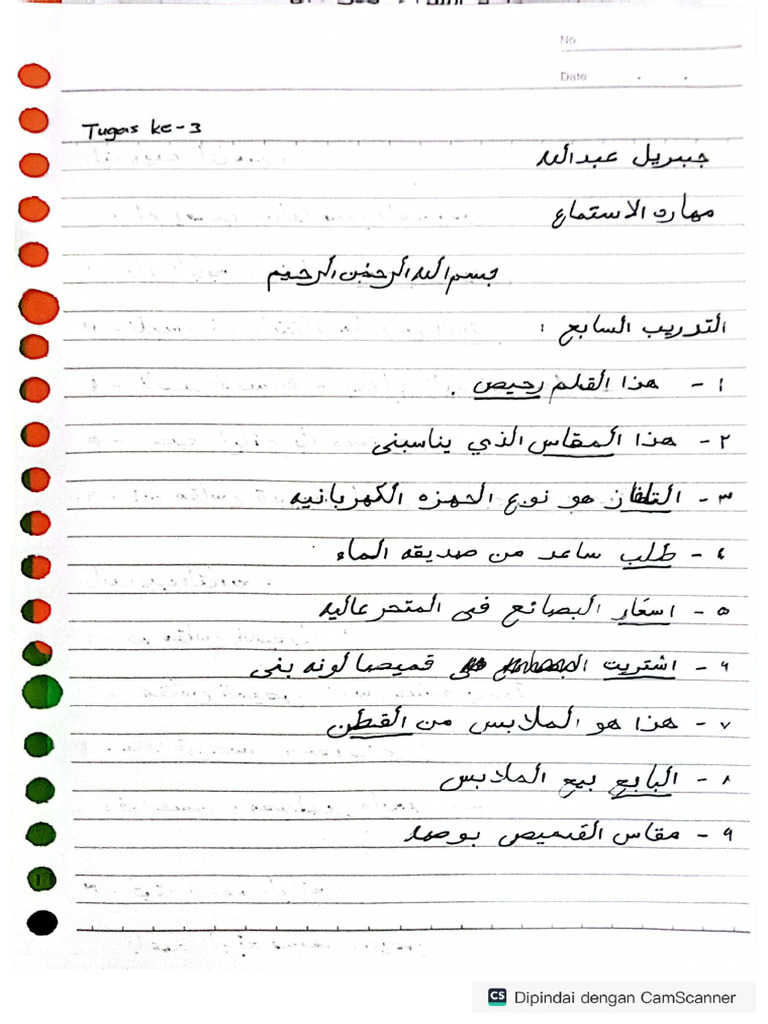 No
Date
Tugas ke-3
جبريل عبدالله
مهارة الاستماع
بسم الله الرحمن الرحيم
التدريب السابع :
١ - هذا القلم رحيص .
٢ - هذا المقاس الذي يناسبنى
٣ - التلفاز هو نوع الحهزه الكهربانيه
٤ - طلب ساعد من صديقه الماء
٥ - اسعار البصانع فى المتحر عاليه
٦ - اشتريت قميصا لونه بنى
٧ - هذا هو الملابس من القطن
٨ - البايع بيع الملابس
٩ - مقاس القميص بوصه
CS Dipindai dengan CamScanner